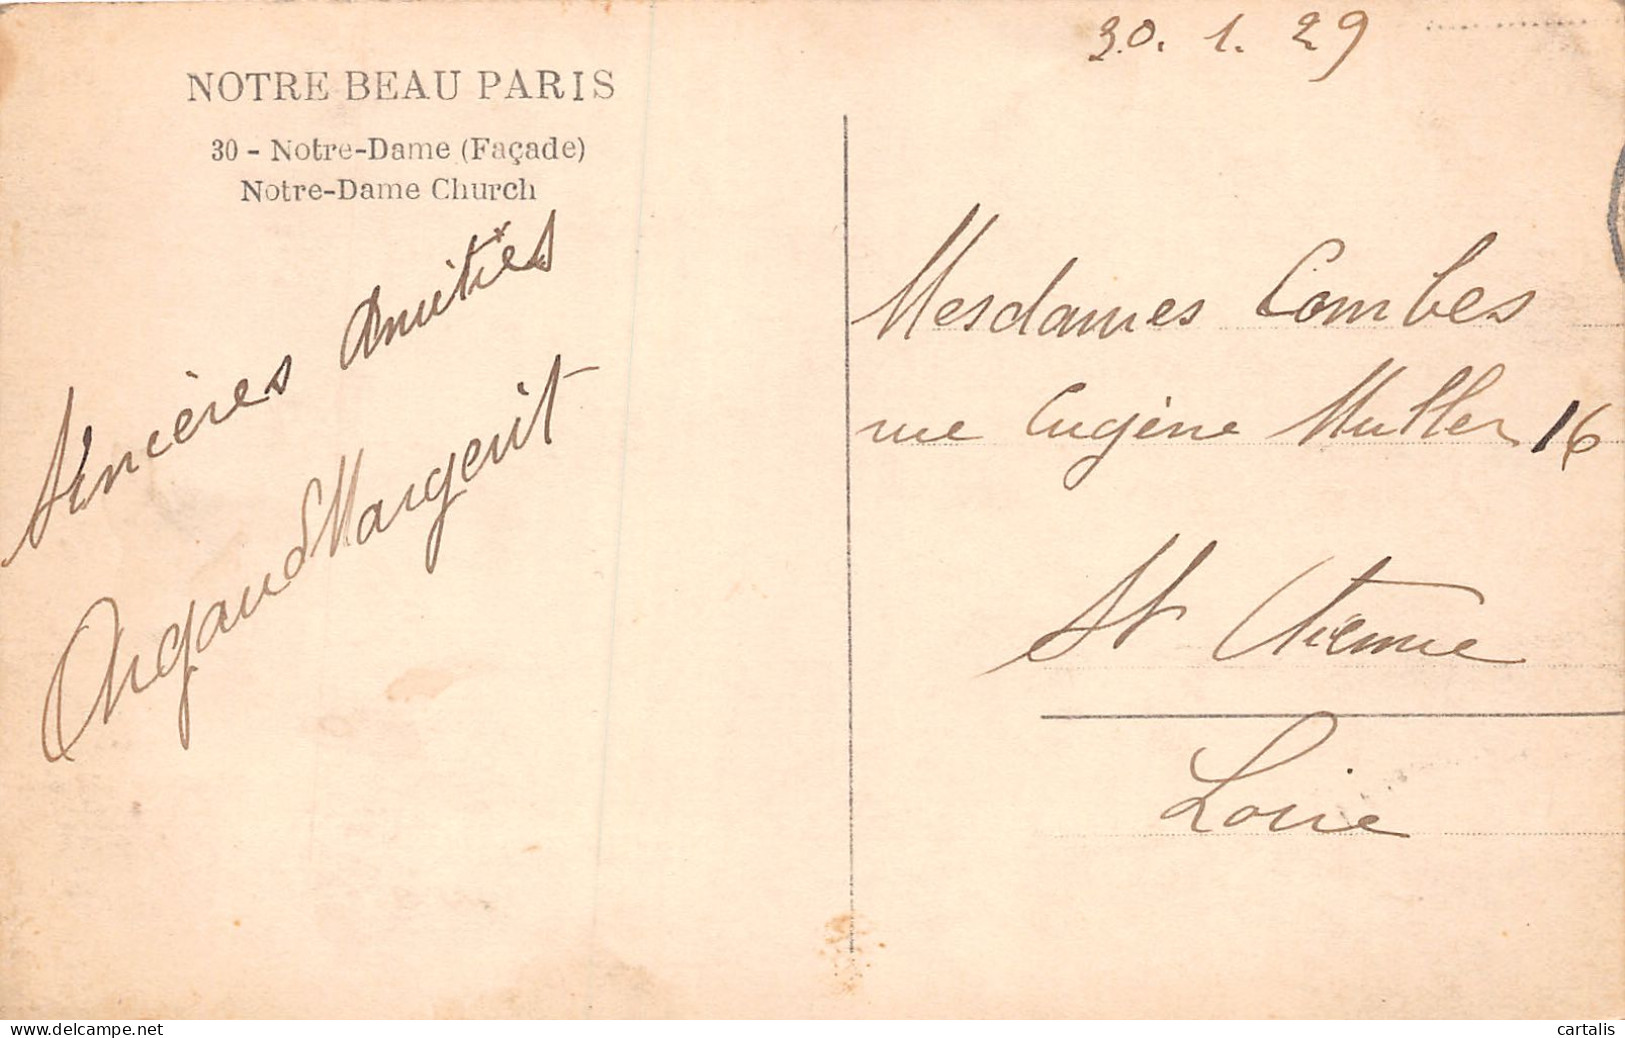 30. 1. 29
NOTRE BEAU PARIS
30 - Notre-Dame (Façade)
Notre-Dame Church
Sincères Amitiés
Argaud Margerit
Mesdames Combes
rue Eugène Muller 16
St Etienne
Loire
cartalis